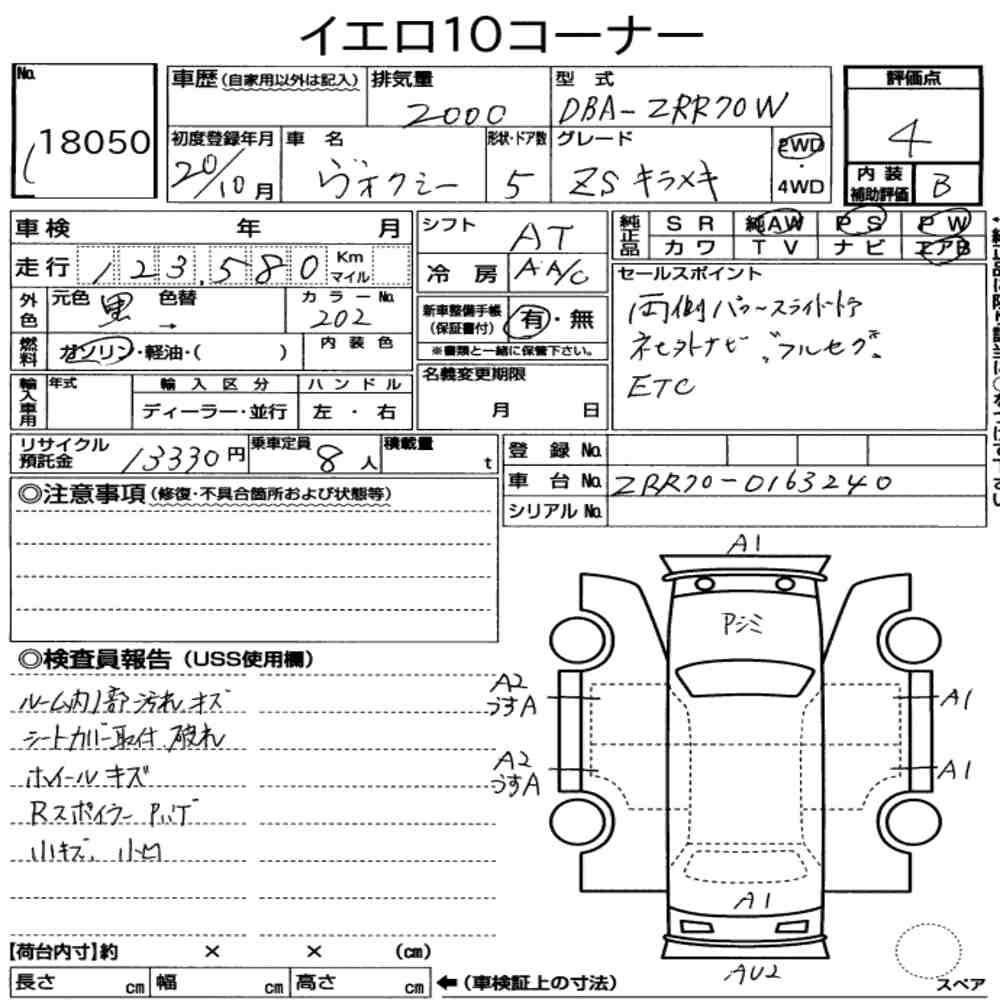 イエロ10コーナー
No.
18050
車歴(自家用以外は記入)
排気量
2000
型式
DBA-ZRR70W
評価点
4
初度登録年月
20/10月
車名
ヴォクシー
形状・ドア数
5
グレード
ZS キラメキ
2WD
・
4WD
内装
補助評価
B
車検 年 月
シフト
AT
純正品
SR 純AW PS PW
カワ TV ナビ エアB
走行 123,580 Km
マイル
冷房
AA/C
セールスポイント
両側パワースライドドア
ETC
外色
元色 黒 色替 →
カラーNo.
202
新車整備手帳
(保証書付)
有・無
※書類と一緒に保管下さい。
燃料
ガソリン・軽油・( )
内装色
名義変更期限
月 日
輸入車用
年式
輸入区分
ディーラー・並行
ハンドル
左・右
リサイクル
預託金
13330円
乗車定員
8人
積載量
t
登録No.
車台No.
ZRR70-0163240
シリアルNo.
◎注意事項(修復・不具合箇所および状態等)
◎検査員報告(USS使用欄)
ルーム内1部汚れ キズ
シートカバー取付 破れ
ホイール キズ
Rスポイラー
小キズ、小凹
A1
Pシミ
A2
うすA
A1
A2
うすA
A1
A1
AU2
【荷台内寸】約 × × (cm)
長さ cm 幅 cm 高さ cm ←(車検証上の寸法)
スペア